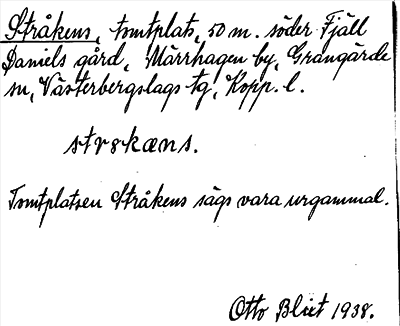 Stråkens, tomtplats, 50 m. söder Fjäll
Daniels gård, Märrhagen by, Grangärde
sn, Västerbergslags tg, Kopp. l.
strokæns.
Tomtplatsen Stråkens sägs vara urgammal.
Otto Blixt 1938.